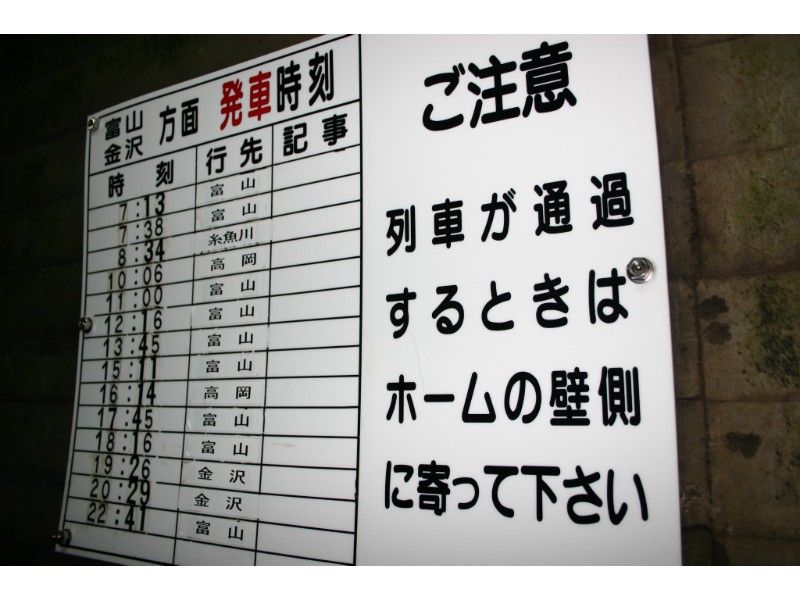 富山
金沢 方面 発車時刻
時 刻 行先 記事
7:13 富山
7:38 富山
8:34 糸魚川
10:06 高岡
11:00 富山
12:16 富山
13:45 富山
15:11 富山
16:14 高岡
17:45 富山
18:16 富山
19:26 金沢
20:29 金沢
22:41 富山
ご注意
列車が通過
するときは
ホームの壁側
に寄って下さい